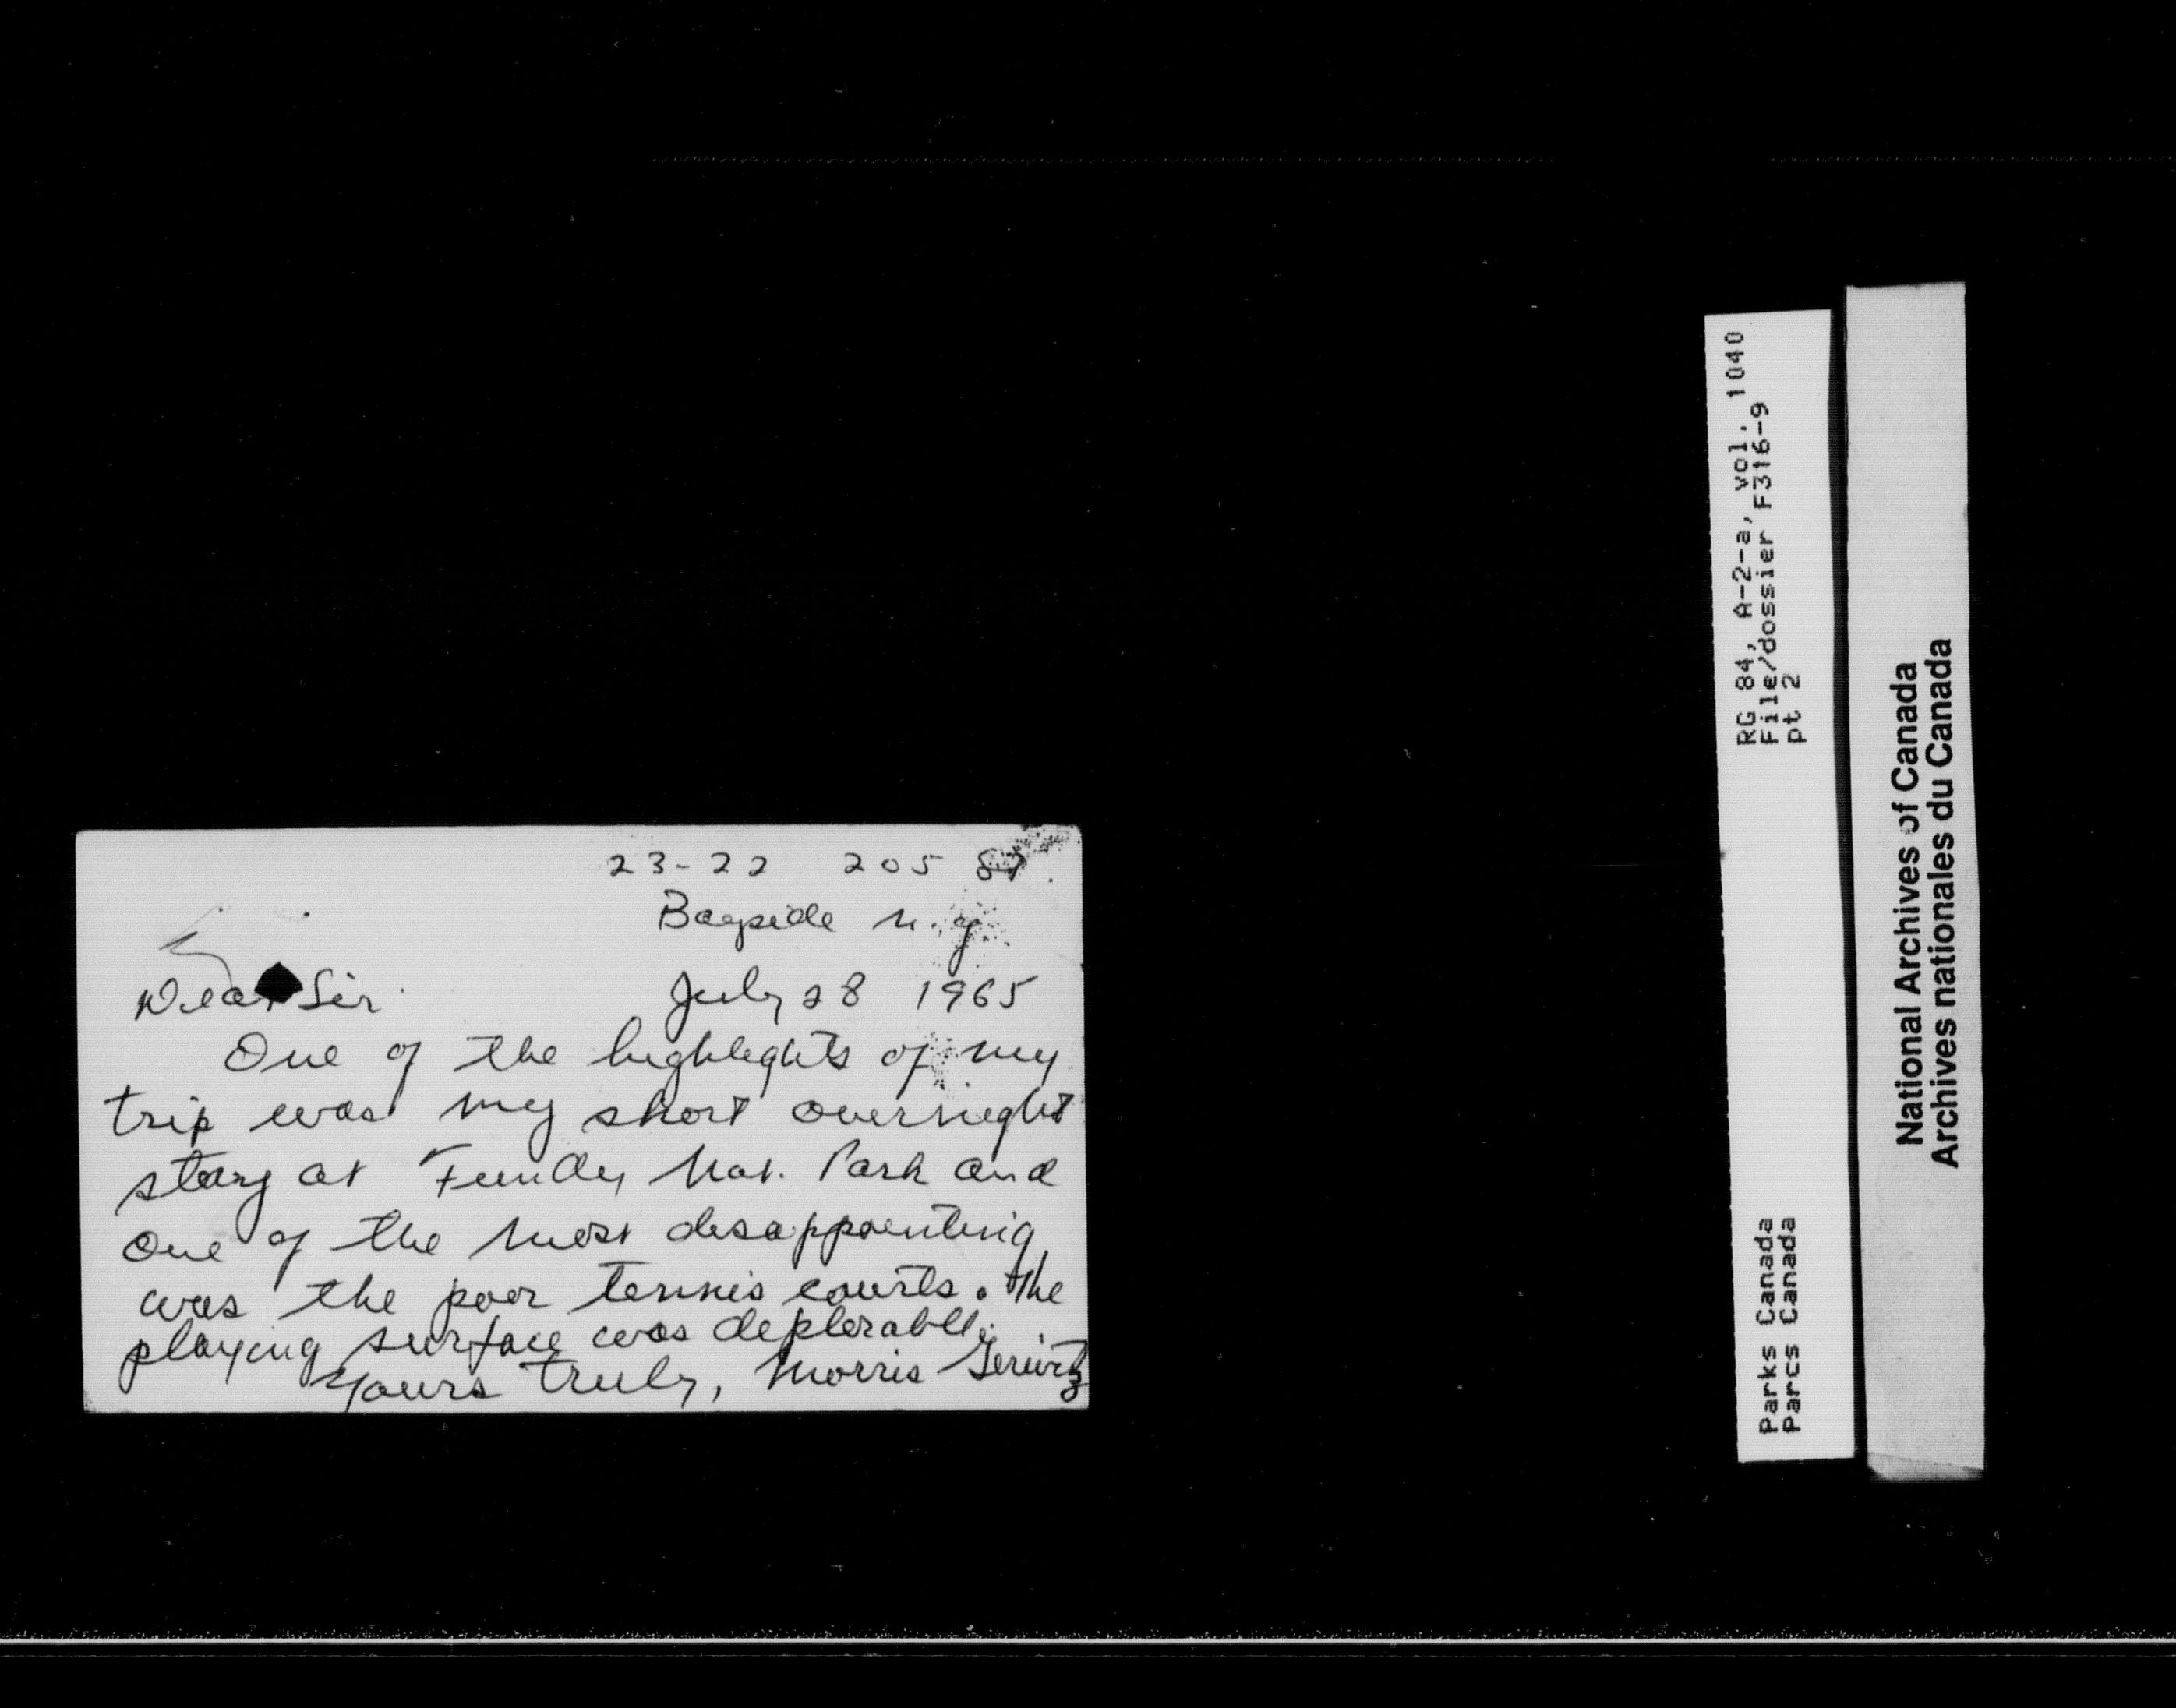 23-22 205 St.
Bayside N.Y.
Dear Sir July 28 1965
One of the highlights of my
trip was my short overnight
stay at Fundy Nat. Park and
one of the most disappointing
was the poor tennis courts. The
playing surface was deplorable.
Yours truly, Morris
RG 84, A-2-a, vol. 1040
File/dossier F316-9
pt 2
Parks Canada
Parcs Canada
National Archives of Canada
Archives nationales du Canada